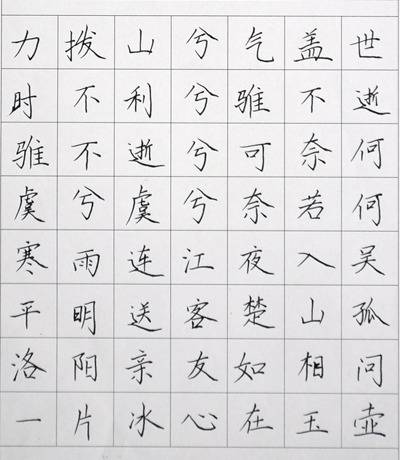 力拨山兮气盖世
时不利兮骓不逝
骓不逝兮可奈何
虞兮虞兮奈若何
寒雨连江夜入吴
平明送客楚山孤
洛阳亲友如相问
一片冰心在玉壶